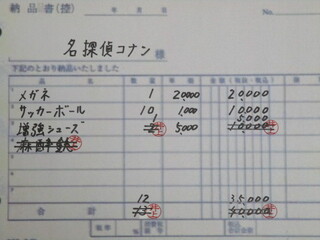 納品書(控) 年 月 日 No.
名探偵コナン 様
下記のとおり納品いたしました
品名 数量 単価 金額(税抜・税込)
メガネ 1 20,000 20,000
サッカーボール 10 1,000 10,000
1 5,000
増強シューズ 2 5,000 10,000
麻酔銃
12 35,000
合計 13 40,000